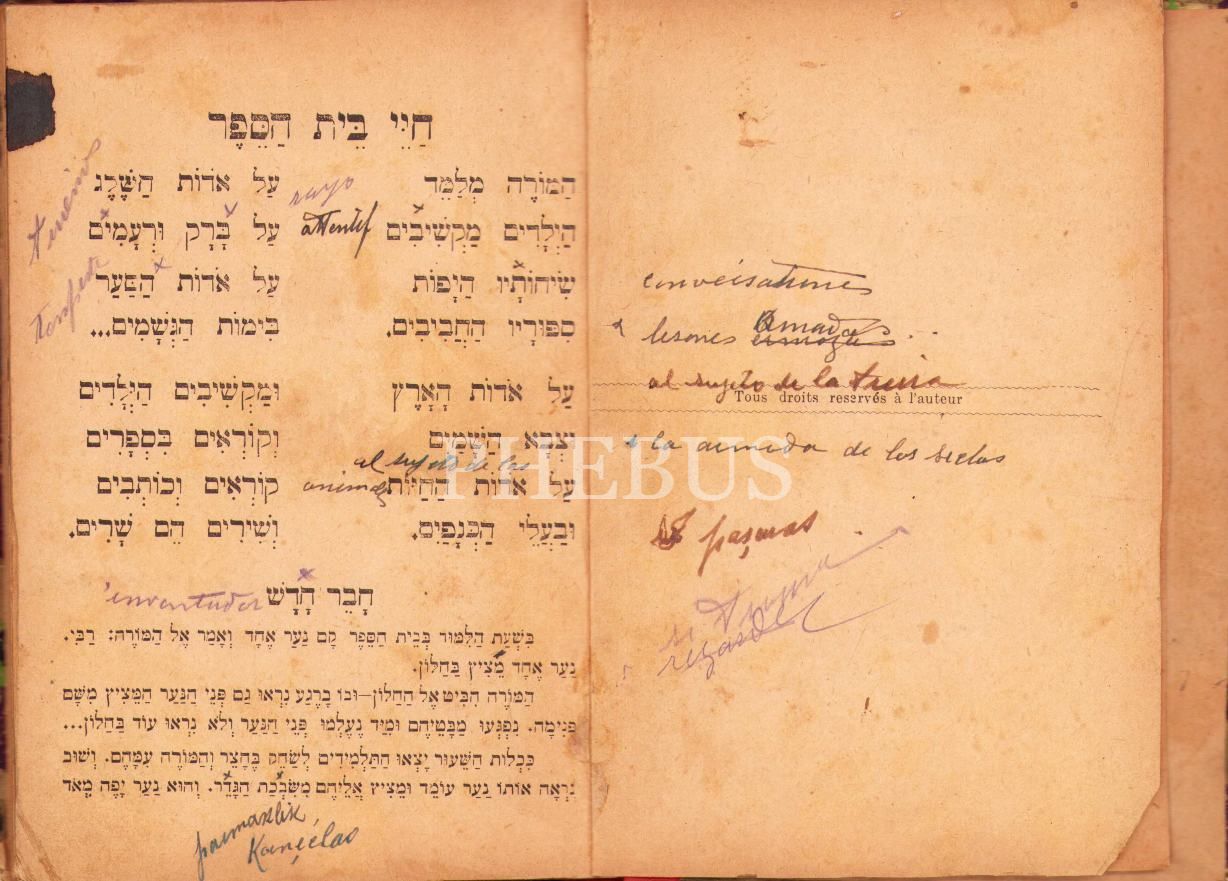 חַיֵּי בֵּית הַסֵּפֶר
הַמּוֹרֶה מְלַמֵּד
הַיְלָדִים מַקְשִׁיבִים
שִׂיחוֹתָיו הַיָּפוֹת
סִפּוּרָיו הַחֲבִיבִים.
עַל אֹדוֹת הָאָרֶץ
וּצְבָא הַשָּׁמַיִם
עַל אֹדוֹת הַחַיּוֹת
וּבַעֲלֵי הַכְּנָפַיִם.
עַל אֹדוֹת הַשֶּׁלֶג
עַל בָּרָק וּרְעָמִים
עַל אֹדוֹת הַסַּעַר
בִּימוֹת הַגְּשָׁמִים...
וּמַקְשִׁיבִים הַיְלָדִים
וְקוֹרְאִים בִּסְפָרִים
קוֹרְאִים וְכוֹתְבִים
וְשִׁירִים הֵם שָׁרִים.
rayo
attentif
al sujeto de los
חָבֵר חָדָשׁ
בִּשְׁעַת הַלִּמּוּד בְּבֵית הַסֵּפֶר קָם נַעַר אֶחָד וְאָמַר אֶל הַמּוֹרֶה: רַבִּי.
נַעַר אֶחָד מֵצִיץ בַּחַלּוֹן.
הַמּוֹרֶה הִבִּיט אֶל הַחַלּוֹן—וּבוֹ בָרֶגַע נִרְאוּ גַם פְּנֵי הַנַּעַר הַמֵּצִיץ מִשָּׁם
פְּנִימָה. נִפְגְּעוּ מַבָּטֵיהֶם וּמִיָּד נֶעֶלְמוּ פְּנֵי הַנַּעַר וְלֹא נִרְאוּ עוֹד בַּחַלּוֹן...
כִּכְלוֹת הַשִּׁעוּר יָצְאוּ הַתַּלְמִידִים לְשַׂחֵק בֶּחָצֵר וְהַמּוֹרֶה עִמָּהֶם. וְשׁוּב
נִרְאָה אוֹתוֹ נַעַר עוֹמֵד וּמֵצִיץ אֲלֵיהֶם מִשִּׂבְכַת הַגָּדֵר. וְהוּא נַעַר יָפֶה מְאֹד
parmaklik
Kançelas
lesones
al sujeto de la tierra
Tous droits reservés à l'auteur
la armada de los sielos
PHEBUS